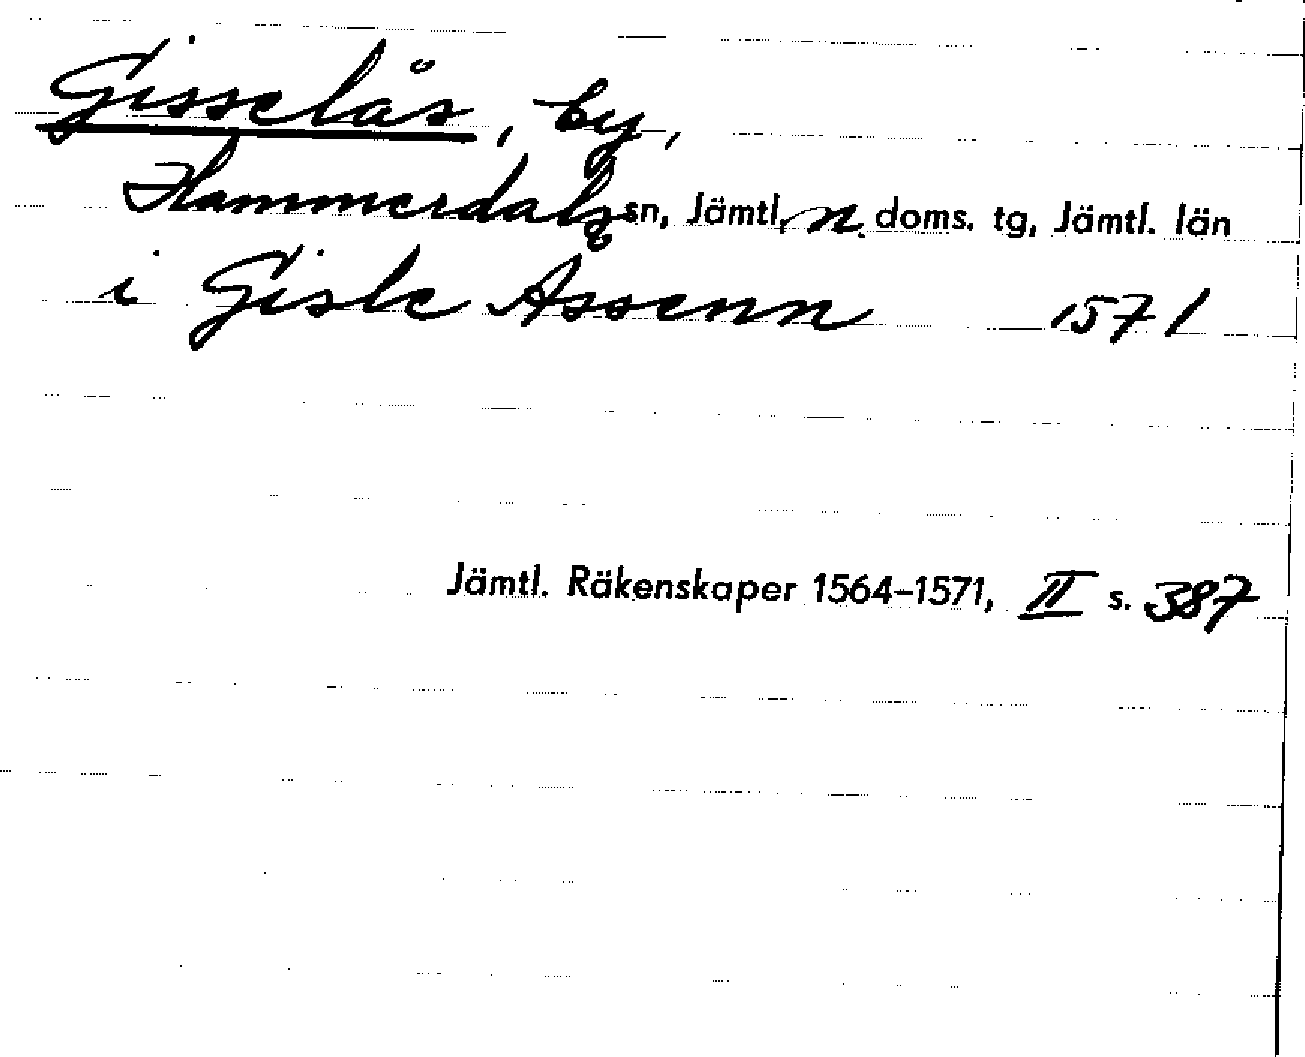 Gisselås, by,
Hammerdals sn, Jämtl. n. doms. tg, Jämtl. län
i Gisle Assenn 1571
Jämtl. Räkenskaper 1564–1571, II s. 387